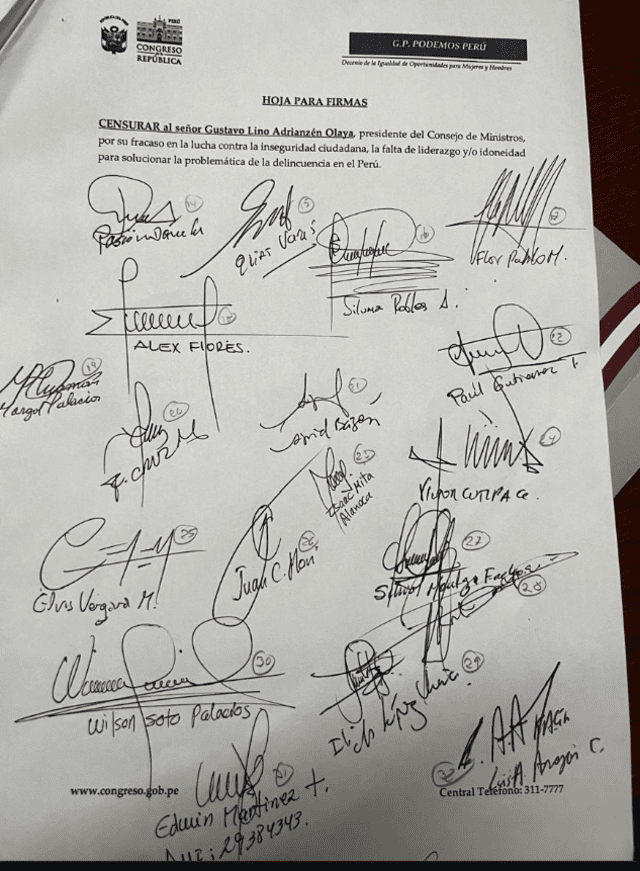 PERÚ
CONGRESO
REPÚBLICA
G.P. PODEMOS PERÚ
Decenio de la Igualdad de Oportunidades para Mujeres y Hombres
HOJA PARA FIRMAS
CENSURAR al señor Gustavo Lino Adrianzén Olaya, presidente del Consejo de Ministros,
por su fracaso en la lucha contra la inseguridad ciudadana, la falta de liderazgo y/o idoneidad
para solucionar la problemática de la delincuencia en el Perú.
14
15
Elias Varas
16
Silvana Robles A.
17
Flor Pablo M.
ALEX FLORES.
19
Margot Palacios
20
F. CRUZ M
21
Sigrid Bazán
22
Paul Gutierrez T.
23
Isaac Mita
Alanoca
24
VICTOR CUTIPA C.
25
Elvis Vergara M.
26
Juan C. Mori
27
28
29
30
Wilson Soto Palacios
31
Edwin Martinez T.
DNI: 29384343.
Luis A. Aragón C.
www.congreso.gob.pe
Central Teléfono: 311-7777